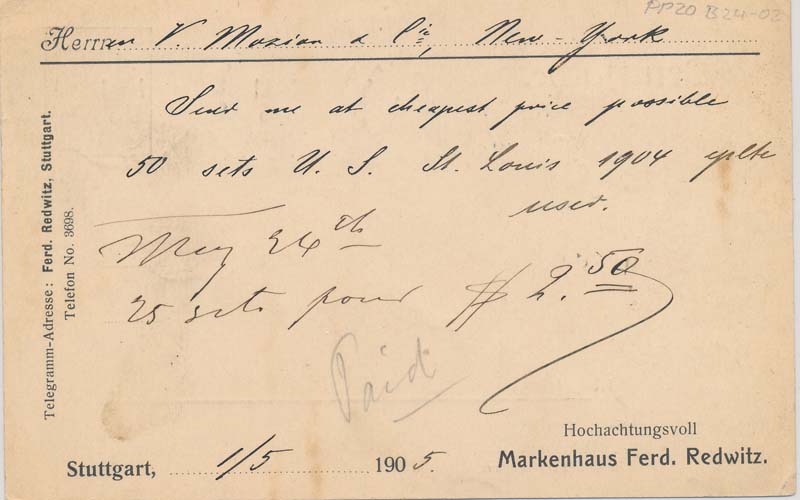 PP20 B24-02
Herren V. Mozian & Cie, New-York
Send me at cheapest price possible
50 sets U. S. St. Louis 1904 cplte
used.
May 24th
25 sets $ 2.50
Paid
Telegramm-Adresse: Ferd. Redwitz, Stuttgart.
Telefon No. 3698.
Hochachtungsvoll
Stuttgart, 1/5 1905.
Markenhaus Ferd. Redwitz.